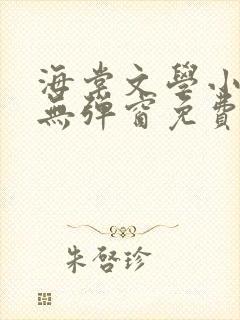 海棠文學小
無彈窗免費
朱啓珍